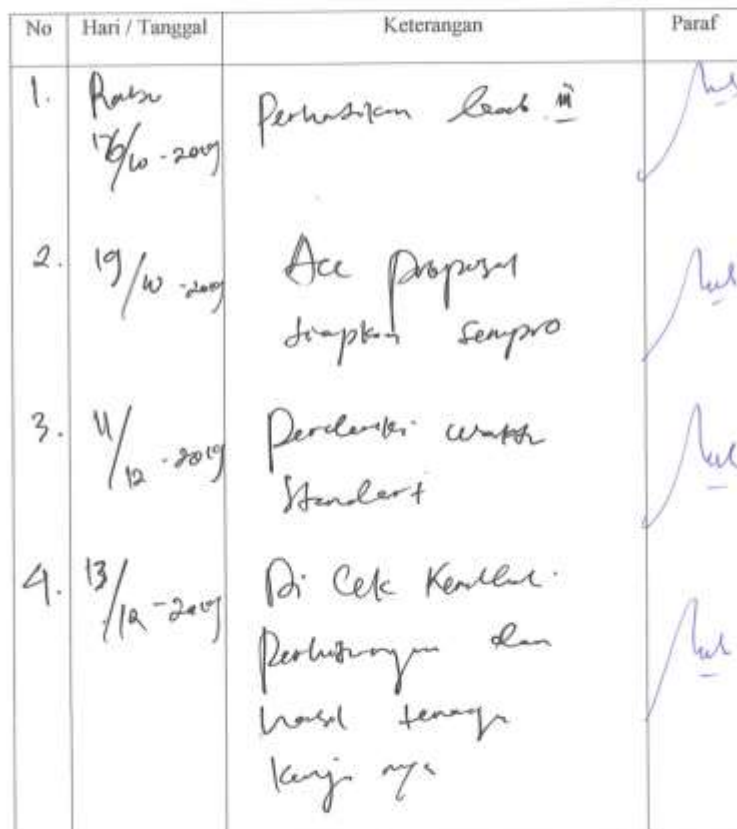 No Hari / Tanggal Keterangan Paraf
1. Rabu Perhatikan bab III
16/10 - 2019
2. 19/10 - 2019 Acc proposal
siapkan sempro
3. 11/12 - 2019 Perbaiki waktu
Standart
4. 13/12 - 2019 Di Cek Kembali
Perhitungan dan
hasil tenaga
kerja nya